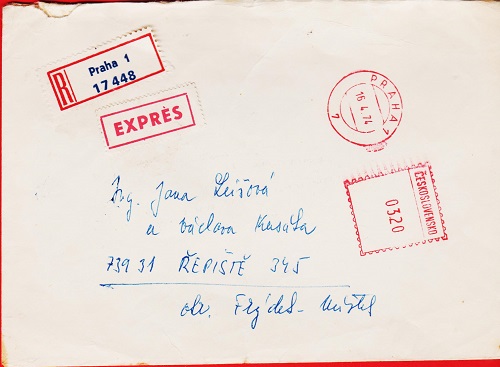 R
Praha 1
17448
EXPRÈS
PRAHA
16.4.74
ČESKOSLOVENSKO
0320
Ing. Jana
a Václava
739 31 ŘEPIŠTĚ 345
okr. Frýdek-Místek